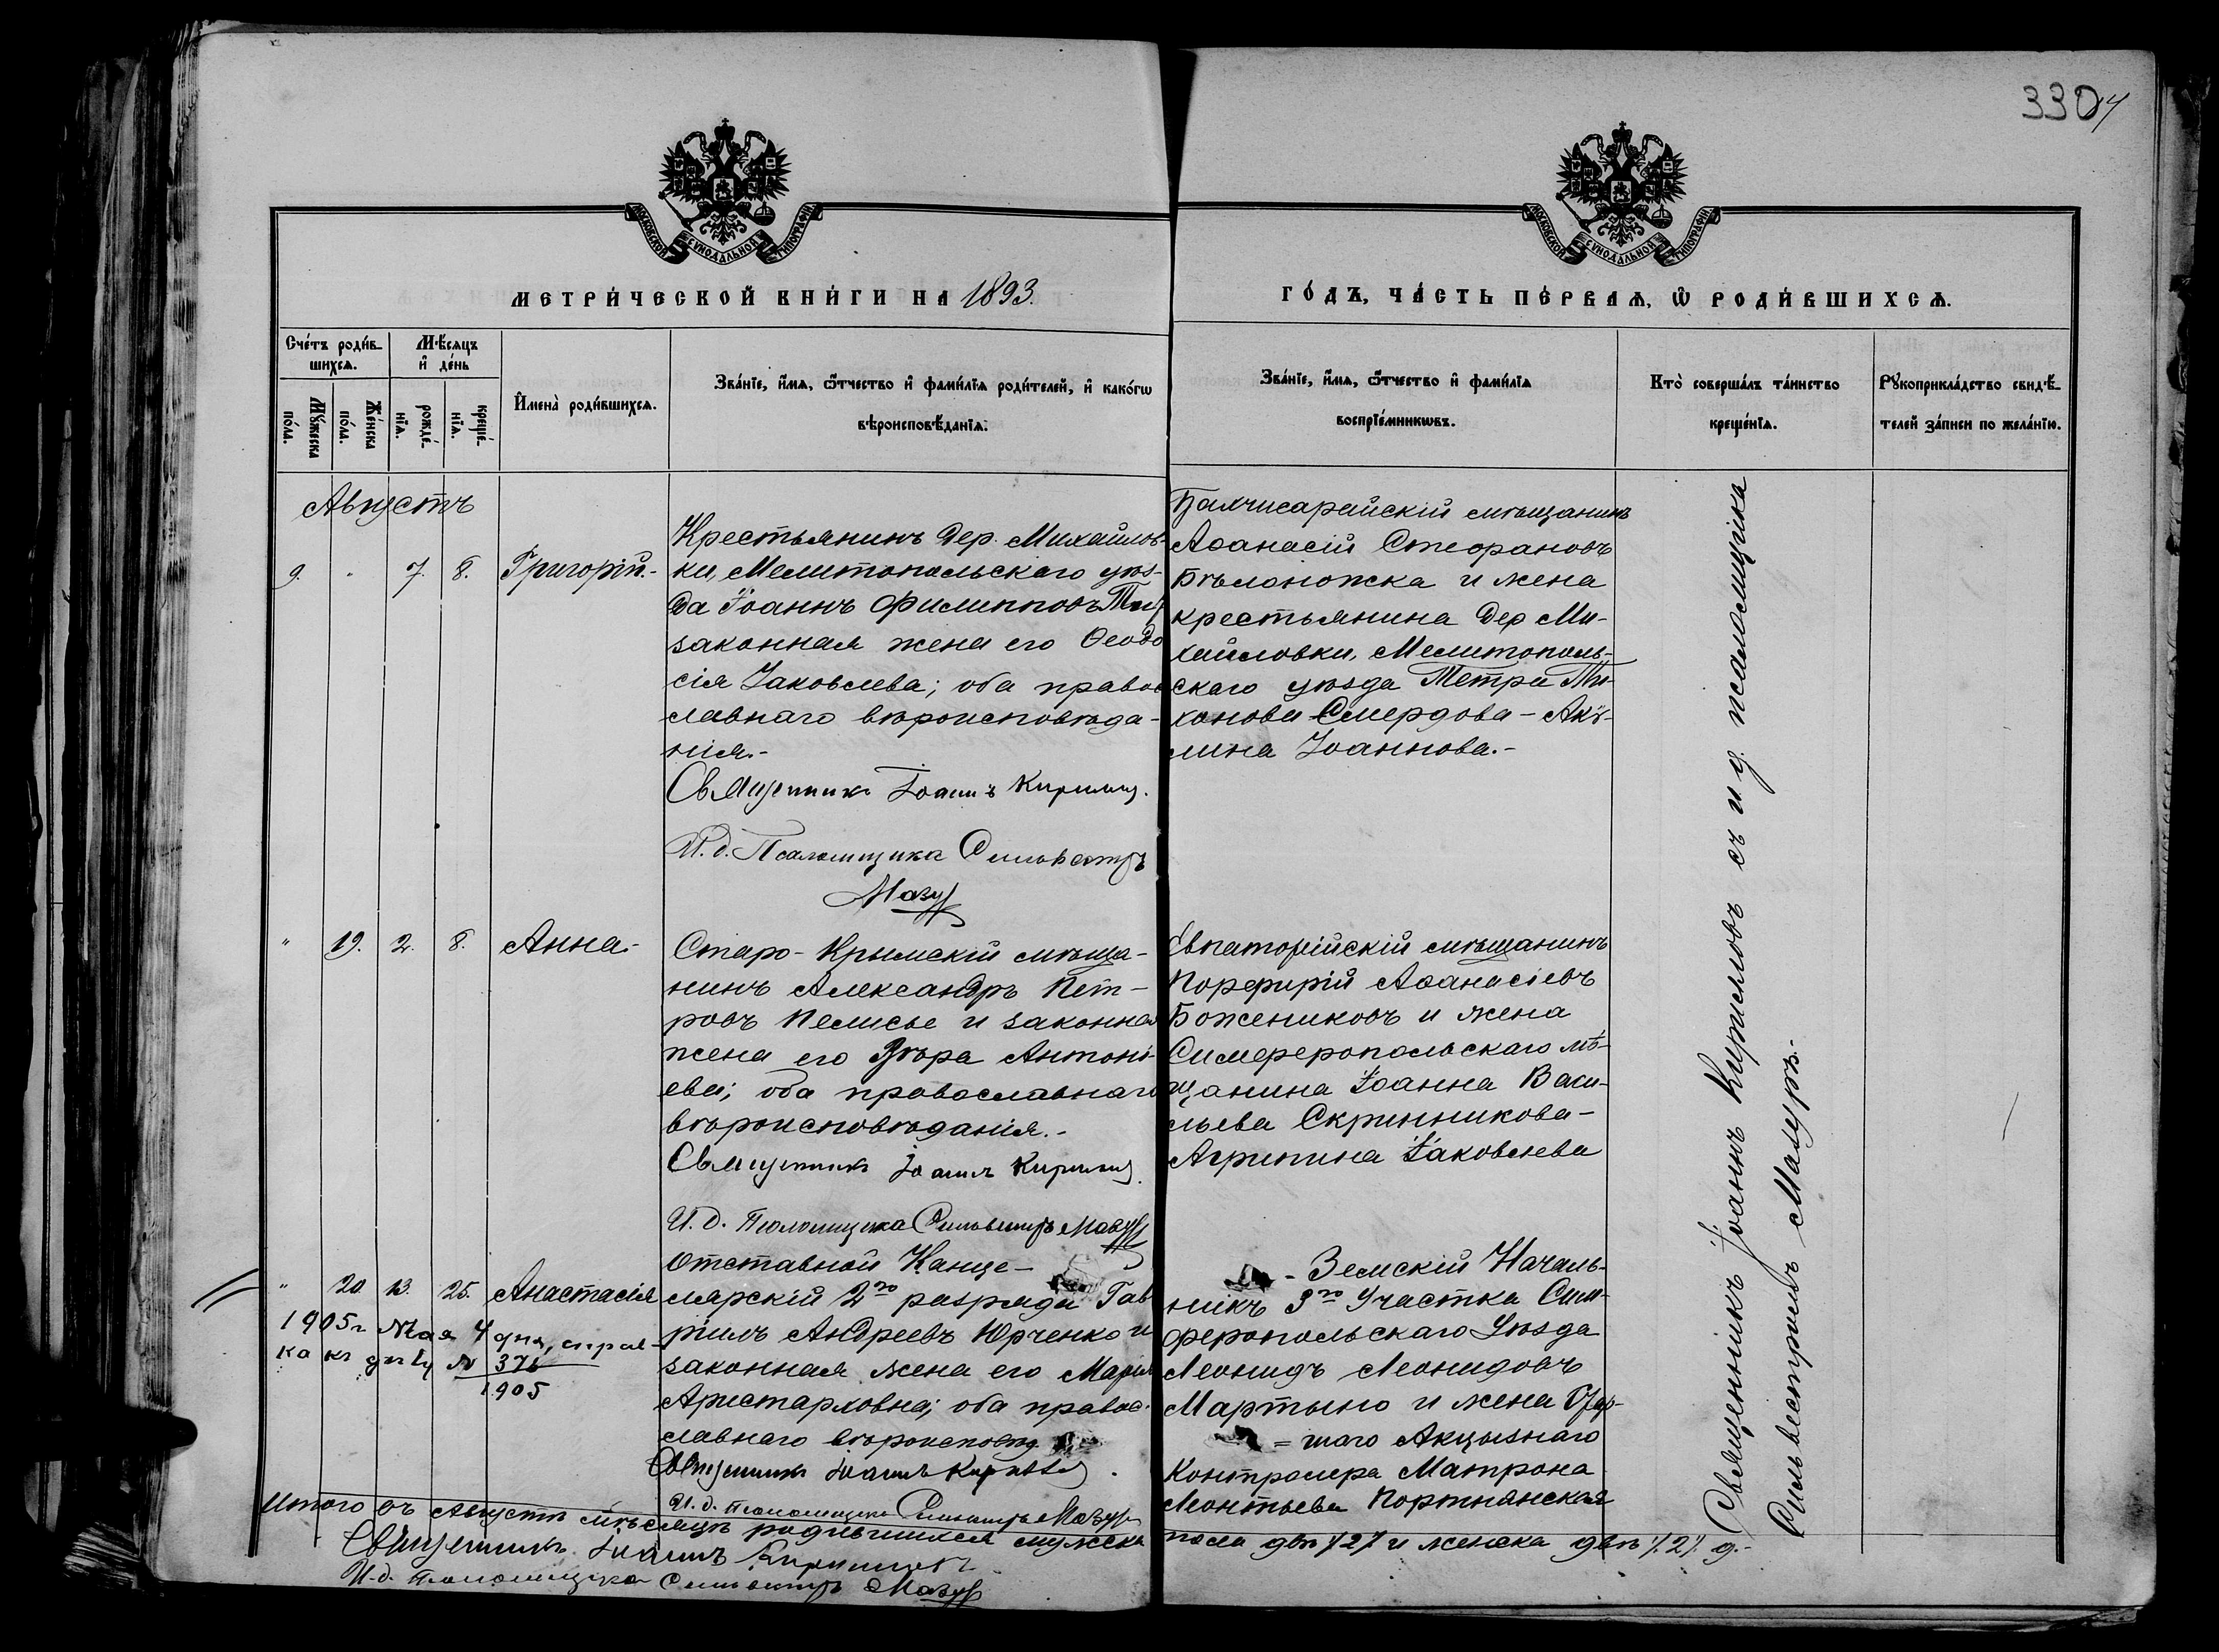 330
МОСКОВСКОЙ СѴНОДАЛЬНОЙ ТИПОГРАФІИ
МОСКОВСКОЙ СѴНОДАЛЬНОЙ ТИПОГРАФІИ
МЕТРИ́ЧЕСКОЙ КНИ́ГИ НА 1893.
ГО́ДЪ, ЧА́СТЬ ПЕ́РВАѦ, Ѿ РОДИ́ВШИХСѦ.
Сче́тъ роди́в-
шихсѧ.
Мꙋ́жеска
по́ла.
Же́нска
по́ла.
Мѣ́сѧцъ
и҆ де́нь
рожде́-
нїѧ.
креще́-
нїѧ.
И҆мена̀ роди́вшихсѧ.
Зва́нїе, и҆́мѧ, ѻ҆́тчество и҆ фами́лїѧ роди́телей, и҆ како́гѡ
вѣроисповѣ́данїѧ.
Зва́нїе, и҆́мѧ, ѻ҆́тчество и҆ фами́лїѧ
воспрїе́мникѡвъ.
Кто̀ соверша́лъ та́инство
креще́нїѧ.
Рꙋкоприкла́дство свидѣ́-
телей за́писи по жела́нїю.
Августъ
9. " 7. 8. Григорій.-
Крестьянинъ дер. Михайлов-
ки, Мелитопольскаго уѣз-
да Іоаннъ Филипповъ
законная жена его Ѳеодо
сія Іаковлева; оба правос
славнаго вѣроисповѣда-
нія.-
Священникъ Іоаннъ Кирилловъ.
И. д. Псаломщика Сильвестръ
Мазур
Бахчисарайскій мѣщанинъ
Аѳанасій Стефановъ
Бѣлоножка и жена
крестьянина дер Ми-
хайловки, Мелитополь-
скаго уѣзда Петра Ти-
хонова Смердова - Аку-
лина Іоаннова.-
" 19. 2. 8. Анна.-
Старо-Крымскій мѣща-
нинъ Александръ Пет-
ровъ Пелисье и законная
жена его Вѣра Антоні-
ева; оба православнаго
вѣроисповѣданія.-
Священникъ Іоаннъ Кирилловъ.
И. д. Псаломщика Сильвестръ Мазур
Евпаторійскій мѣщанинъ
Порфирій Аѳанасіевъ
Божениковъ и жена
Симферопольскаго мѣ-
щанина Іоанна Васи-
льева Скринникова-
Агрипина Іаковлева
" 20. 13. 25. Анастасія
1905 г Мая 4 дня, справ-
ка къ дѣлу №
1905
Отставной Канце-
лярскій 2го разряда Гав
ріилъ Андреевъ Юрченко и
законная жена его Марія
Аристарховна; оба правос-
славнаго вѣроисповѣд
Священникъ Іоаннъ Кирилловъ.
И. д. Псаломщика Сильвестръ Мазур
- Земскій Началь-
никъ 3го Участка Сим-
феропольскаго Уѣзда
Леонидъ Леонидовъ
Мартыно и жена
= шаго Акцызнаго
Контролера Матрона
Леонтьева Портнянская
Священникъ Іоаннъ Кирилловъ съ и. д. псаломщика
Сильвестромъ Мазуръ.-
Итого въ Августѣ мѣсяцѣ родившихся мужска пола два /2/ и женска двѣ /2/ д.-
Священникъ Іоаннъ Кирилловъ
И. д. Псаломщика Сильвестръ Мазур